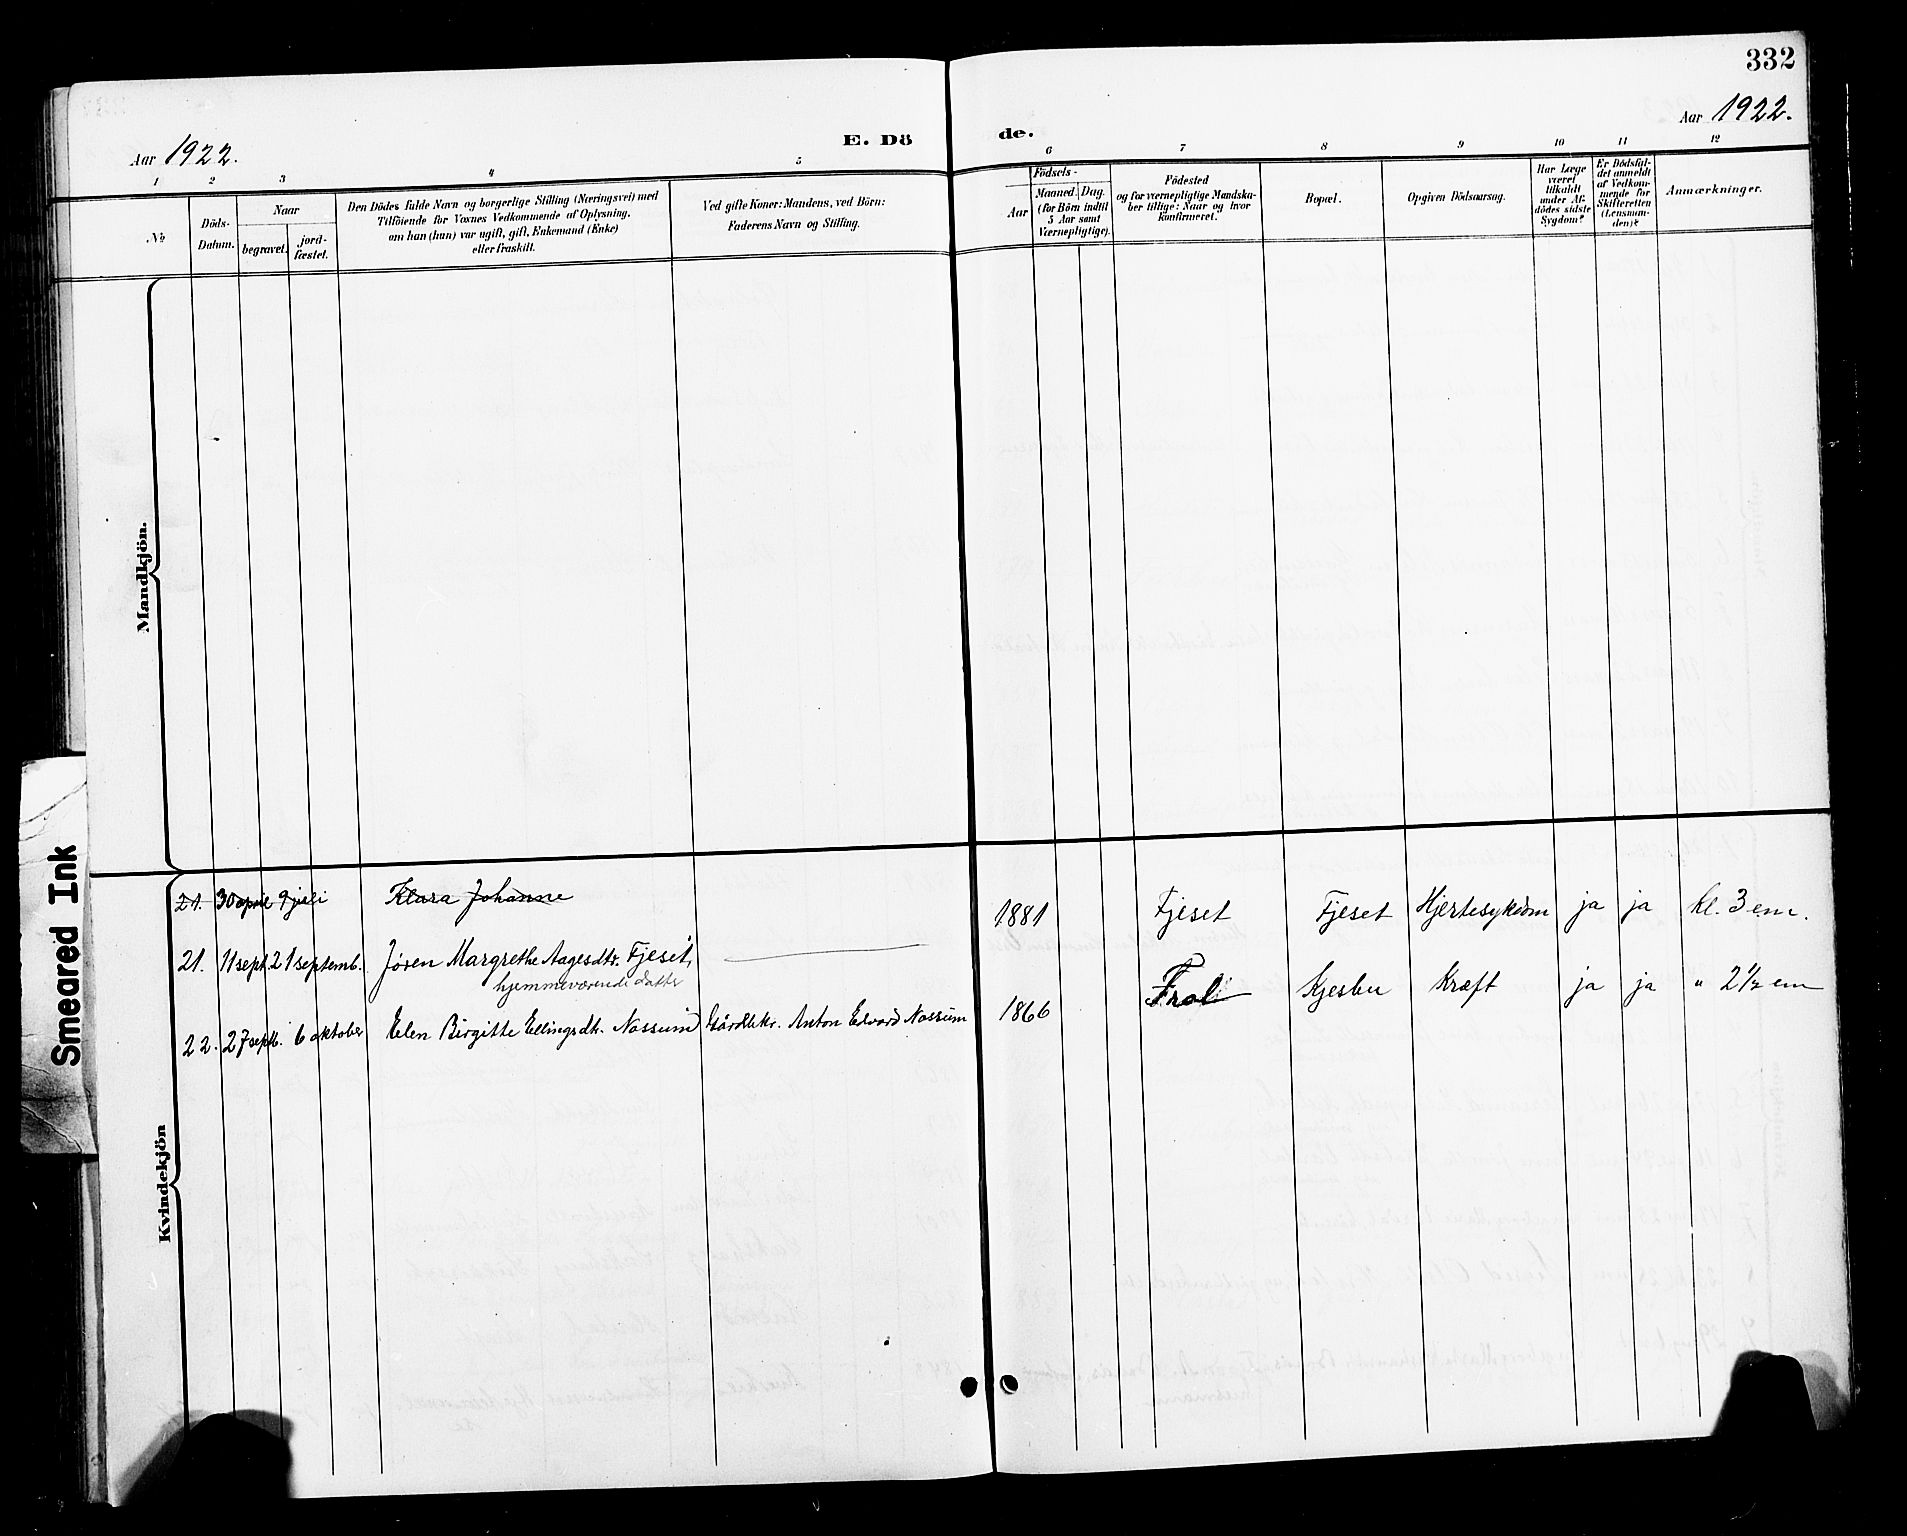 332
Aar 1922.
E. Dö
de.
Aar 1922.
1 2 3 4 5 6 7 8 9 10 11 12
No
Döds-
Datum.
Naar
begravet.
jord-
fæstet.
Den Dödes fulde Navn og borgerlige Stilling (Næringsvei) med
Tilföiende for Voxnes Vedkommende af Oplysning,
om han (hun) var ugift, gift, Enkemand (Enke)
eller fraskilt.
Ved gifte Koner: Mandens, ved Börn:
Faderens Navn og Stilling.
Födsels-
Aar
Maaned. Dag.
(for Börn indtil
5 Aar samt
Værnepligtige).
Födested
og for værnepligtige Mandska-
ber tillige: Naar og hvor
konfirmeret.
Bopæl.
Opgiven Dödsaarsag.
Har Læge
været
tilkaldt
under Af-
dödes sidste
Sygdom?
Er Dödsfal-
det anmeldt
af Vedkom-
mende for
Skifteretten
(Lensman-
den)?
Anmærkninger.
Mandkjön.
Kvindekjön
21. 30 april 9 juli Klara Johanne
21. 11 sept. 21 septemb. Jøren Margrethe Aagesdtr. Fjeset, 1881 Fjeset Fjeset Hjertesykdom ja ja kl. 3 em.
hjemmeværende datter
22. 27 septb. 6 oktober Elen Birgitte Ellingsdtr. Nossum Gårdbkr. Anton Edvard Nossum 1866 Frol Kjesbu Kræft ja ja " 2½ em
Smeared Ink